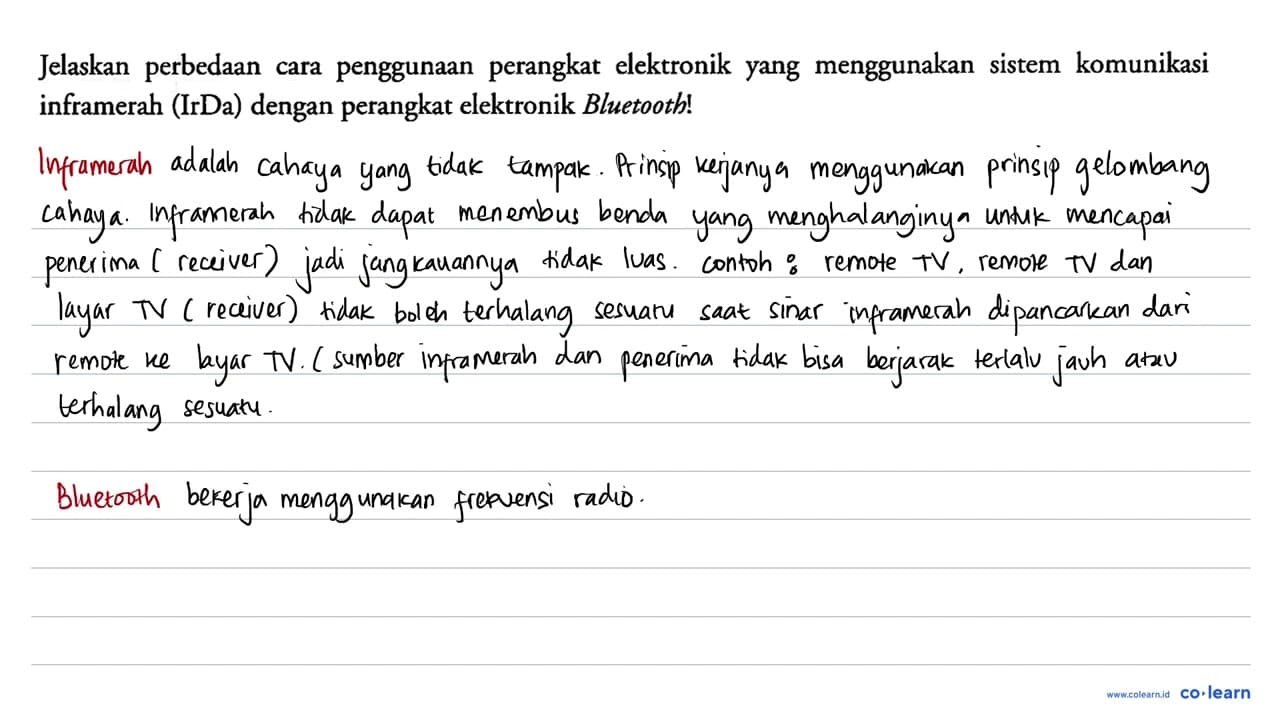 Jelaskan perbedaan cara penggunaan perangkat elektronik yang menggunakan sistem komunikasi
inframerah (IrDa) dengan perangkat elektronik Bluetooth!
Inframerah adalah cahaya yang tidak tampak. Prinsip kerjanya menggunakan prinsip gelombang
cahaya. Inframerah tidak dapat menembus benda yang menghalanginya untuk mencapai
penerima ( receiver) jadi jangkauannya tidak luas. contoh : remote TV, remote TV dan
layar TV ( receiver) tidak boleh terhalang sesuatu saat sinar inframerah dipancarkan dari
remote ke layar TV. ( sumber inframerah dan penerima tidak bisa berjarak terlalu jauh atau
terhalang sesuatu.
Bluetooth bekerja menggunakan frekuensi radio.
www.colearn.id co·learn